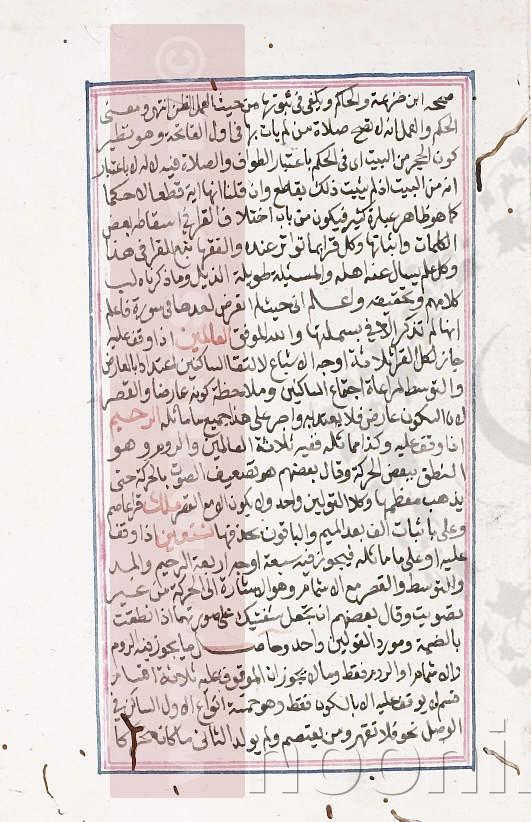 صححه ابن خزيمة والحاكم ويكفى فى ثبوتها من حيث العمل الظن انتهى ومعنى
الحكم والعمل انه لا تصح صلاة من لم يات بها فى اول الفاتحة وهو نظير
كون الحجر من البيت اى فى الحكم باعتبار الطواف والصلاة فيه لا له باعتبار
انه من البيت اذ لم يثبت ذلك بقاطع وان قلنا انها اية قطعا لا حكما
كما هو ظاهر عبارة كثير فيكون من باب اختلاف القراء فى اسقاط بعض
الكلمات واثباتها وكل قرا بما تواتر عنده والفقهاء تبع للقراء فى هذا
وكل علم يسال عنه اهله والمسئلة طويلة الذيل وما ذكرناه لب
كلامهم وتحقيقه واعلم انى حيث لم اتعرض لعدها فى سورة فاعلم
انها لم تذكر الا فى بسملتها والله الموفق العالمين اذا وقف عليه
جاز لكل القراء ثلاثة اوجه الاشباع لالتقا الساكنين اعتدادا بالعارض
والتوسط لمراعاة اجتماع الساكنين وملاحظة كونه عارضا والقصر
لان السكون عارض فلا يعتد به واجر على هذا جميع ما ماثله الرحيم
اذا وقف عليه وكذا مماثله ففيه ثلاثة العالمين والروم وهو
النطق ببعض الحركة وقال بعضهم هو تضعيف الصوت بالحركة حتى
يذهب معظمها وكلا القولين واحد ولا يكون الا مع القصر ملك قرا عاصم
وعلى باثبات الف بعد الميم والباقون بحذفها نستعين اذا وقفت
عليه او على ما ماثله فيجوز فيه سبعة اوجه اربعة الرحيم والمد
والتوسط والقصر مع الاشمام وهو الاشارة الى الحركة من غير
تصويت وقال بعضهم ان تجعل شفتيك على صورتهما اذا نطقت
بالضمة ومورد القولين واحد وحاصل ما يجوز فيه الروم
والاشمام او الروم فقط وما لا يجوز ان الموقوف عليه ثلاثة اقسام
قسم لا يوقف عليه الا بالسكون فقط وهو خمسة انواع الاول الساكن فى
الوصل نحو فلا تقهر ومن يعتصم ولم يولد الثانى ما كان